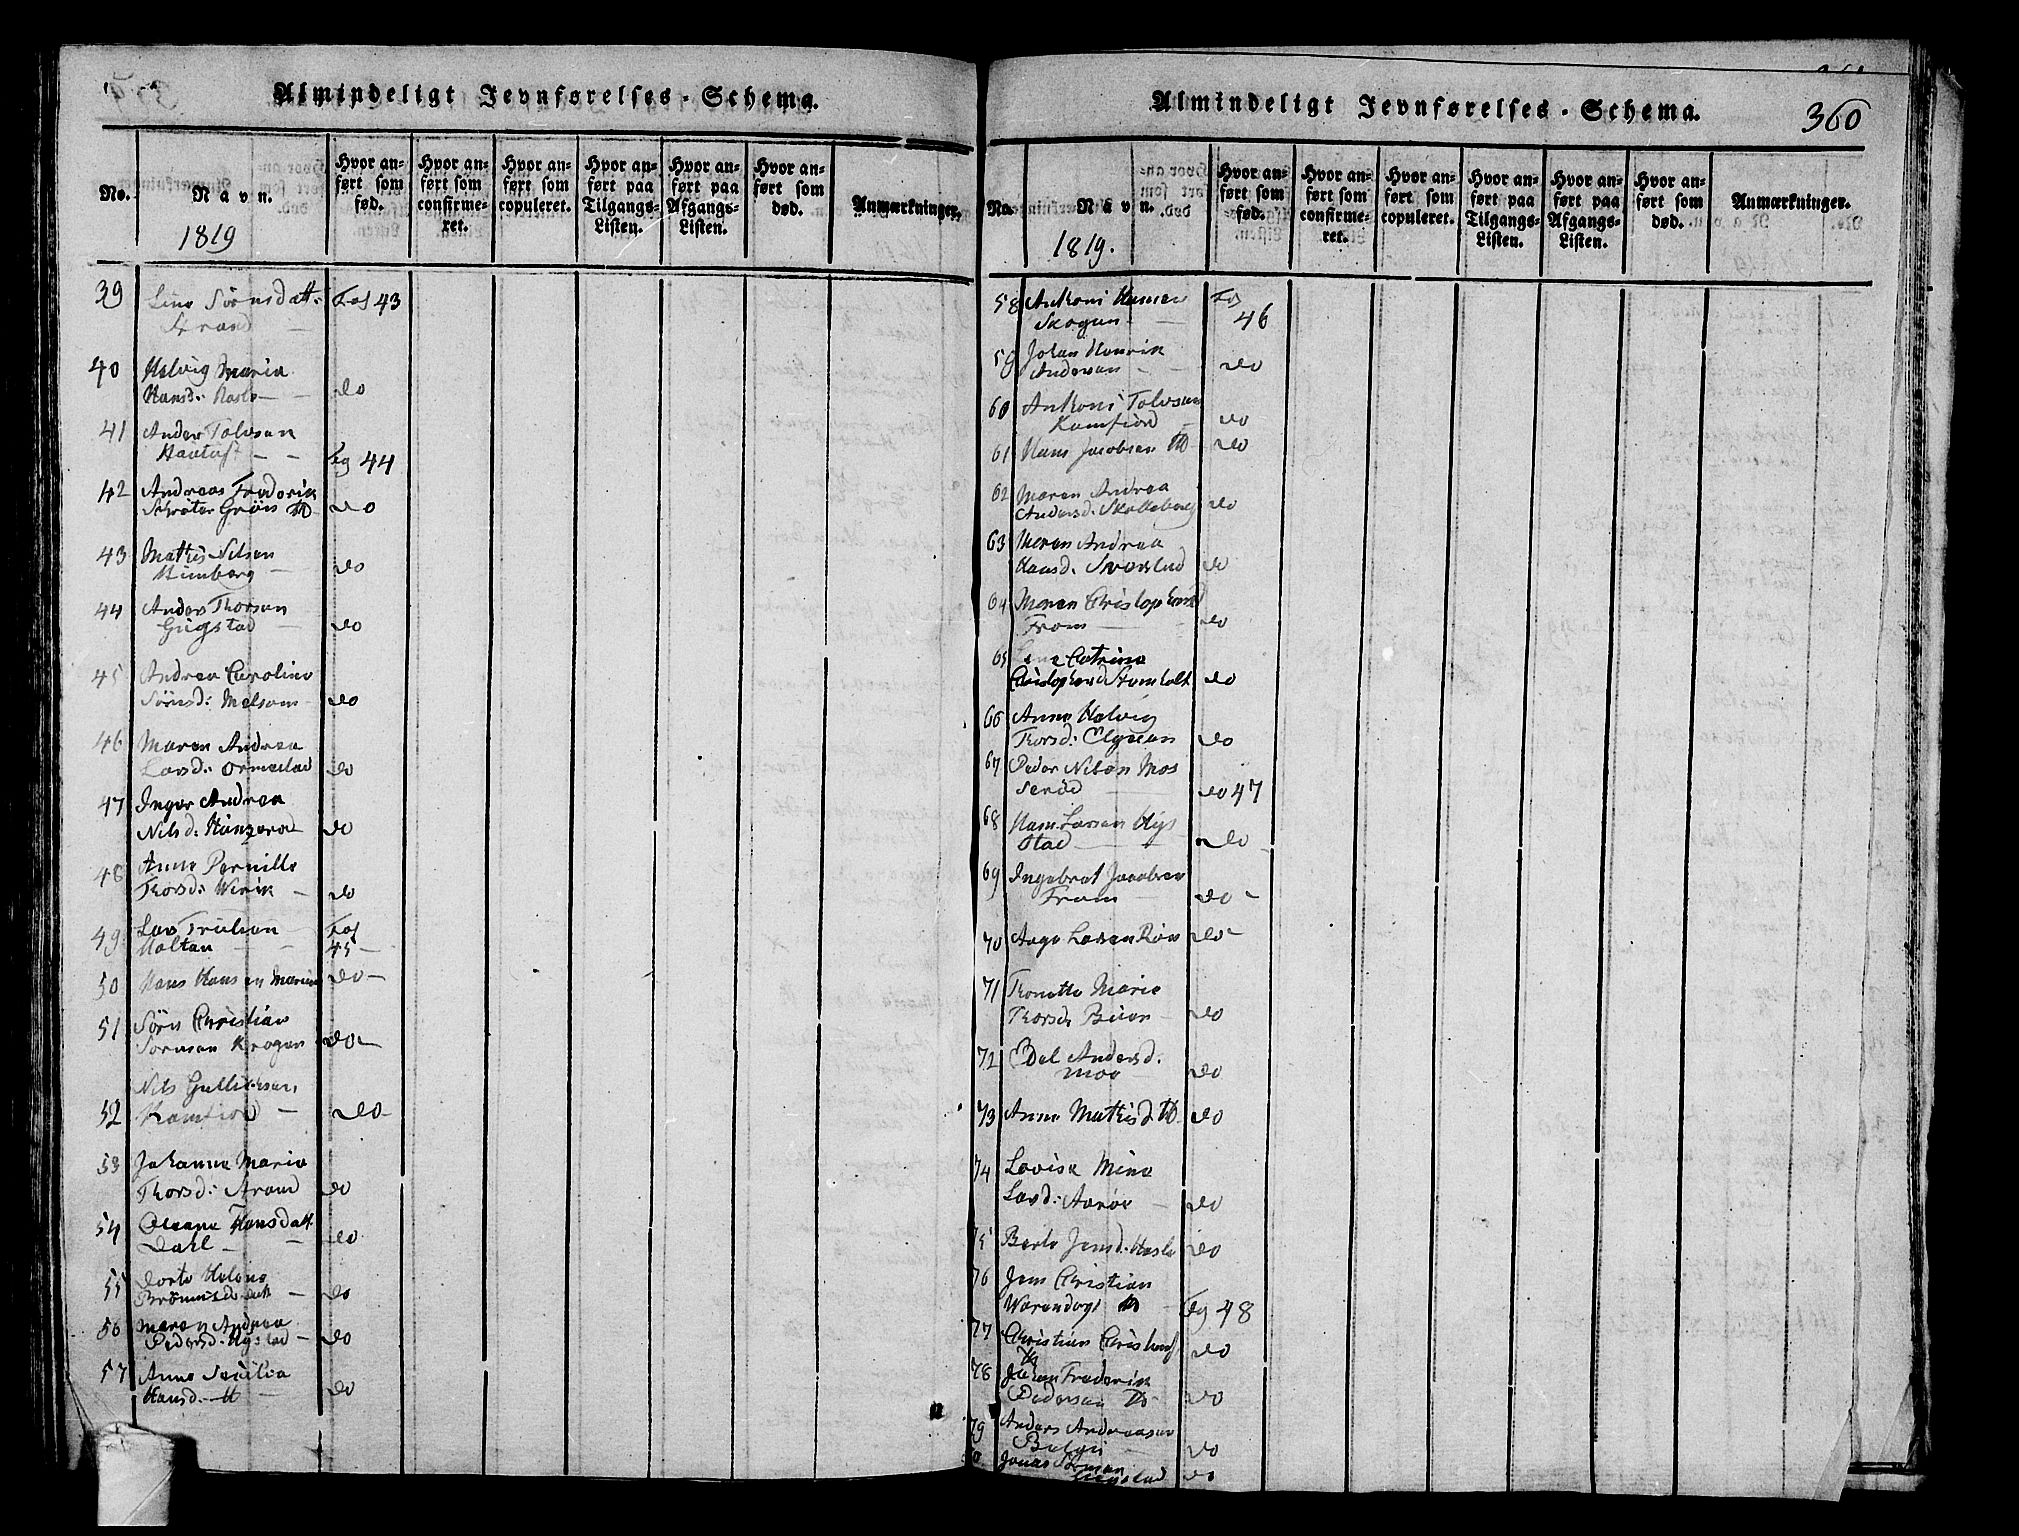 Almindeligt Jevnførelses-Schema.
No.
Navn.
1819
Hvor anført som fød.
Hvor anført som confirmeret.
Hvor anført som copuleret.
Hvor anført paa Tilgangs-Listen.
Hvor anført paa Afgangs-Listen.
Hvor anført som død.
Anmærkninger.
39 Line Sørnsdatt: Fog 43
Strand
40 Helvig Maria
Hansd: Hasle do
41 Anders Tolvsen
Haatuft Fog 44
42 Andreas Frederik
Schrøter Grøn do
43 Mathis Nilsen
Himberg do
44 Anders Thorsen
Gugstad do
45 Andrea Caroline
Sörnsd: Melsom do
46 Maren Andrea
Larsd: Ormestad do
47 Inger Andrea
Nilsd: do
48 Anne Pernille
Thorsd: Wirik do
49 Lars Trulsen Fog
Holtan 45
50 Hans Hansen do
51 Sörn Christian
Sörnsen Krogen do
Nils Gullicksen
52 Kamfiord do
53 Johanne Maria
Thorsd: Strand do
54 Oleane Hansdatt
Dahl do
55 Dorte Helene
do
56 Maren Andrea
Pedersd: Hystad do
57 Anne Secilia
Hansd: do
Almindeligt Jevnførelses-Schema. 360
No.
Navn.
1819.
Hvor anført som fød.
Hvor anført som confirmeret.
Hvor anført som copuleret.
Hvor anført paa Tilgangs-Listen.
Hvor anført paa Afgangs-Listen.
Hvor anført som død.
Anmærkninger.
58 Anthoni Hansen Fog
Skogen 46
59 Johan Henrik
Andersen do
60 Anthoni Tolvsen
Kamfiord do
61 Hans Jacobsen do
62 Maren Andrea
Andersd: Skolleborg do
63 Maren Andrea
Hansd. do
64 Maren Christophersd
From do
65 Lene Catrine
Christophersd do
66 Anne Helvig
Thorsd: Elgesen do
67 Peder Nilsen Mos
serød do 47
68 Hans Larsen Hys
stad do
69 Ingebret Jacobsen
From do
70 Aage Larsen do
71 Thonette Marie
Thorsd. do
72 Edel Andersd:
Moe do
73 Anne Mathisd. do
74 Lovise Mine
Larsd: do
75 Berte Jensd: Hasle do
76 Jens Christian
Fog 48
77 Christian do
78 Johan Frederik
Pedersen do
79 Anders Andreasen
do
Jonas
do